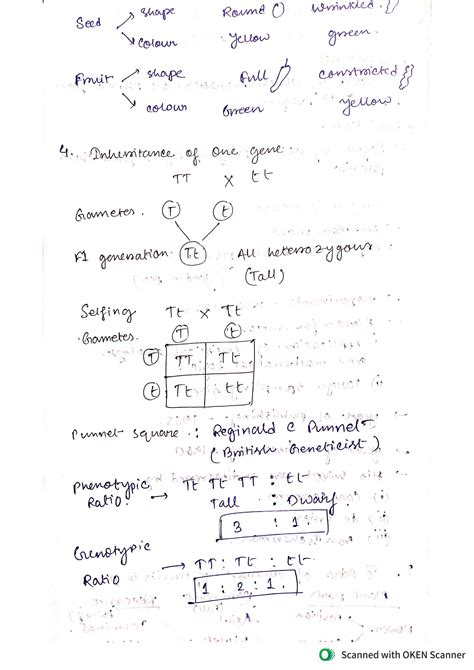 Seed shape Round Wrinkled
colour Yellow green.
Fruit shape full constricted
colour Green yellow.
4. Inheritance of one gene.
TT X tt
Gametes. T t
F1 generation. Tt All heterozygous
(Tall)
Selfing Tt X Tt
Gametes. T t
T TT Tt
t Tt tt
Punnet square : Reginald C Punnet
(British Geneticist)
Phenotypic Ratio. → Tt Tt TT : tt
Tall : Dwarf
3 : 1.
Genotypic Ratio → TT : Tt : tt
1 : 2 : 1.
Scanned with OKEN Scanner